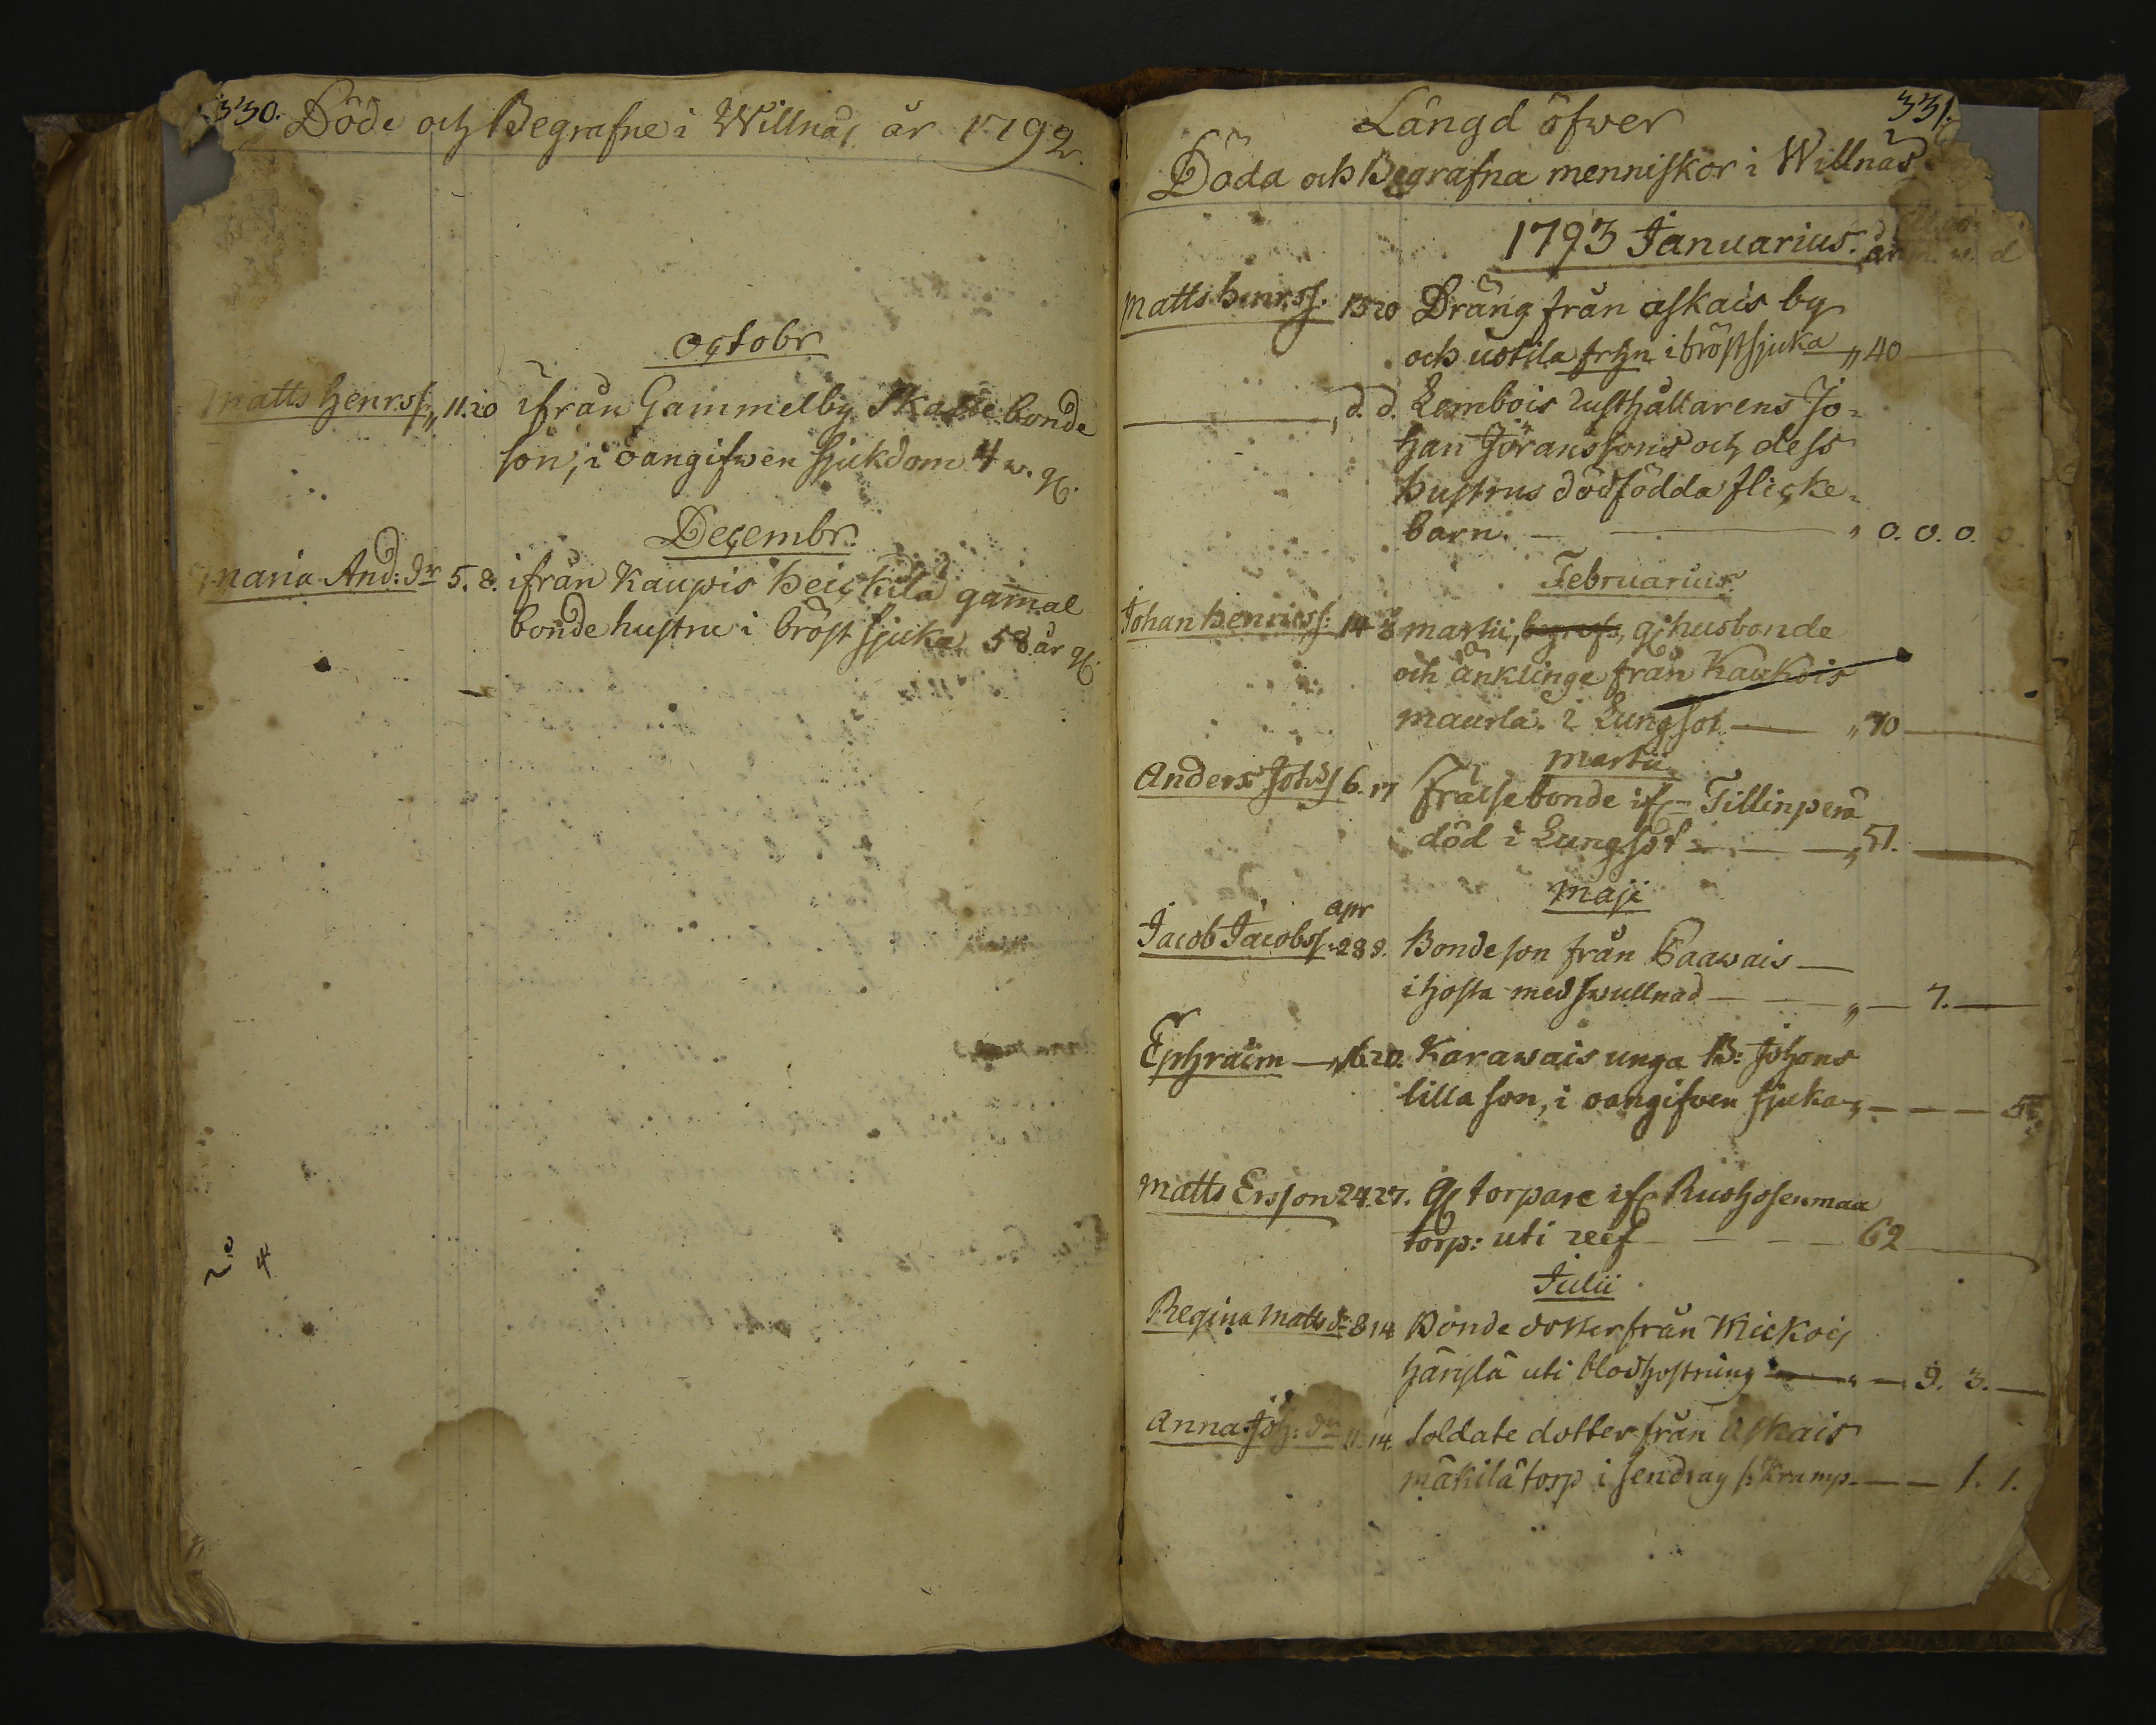 330. Döde och Begrafne i Willnäs år 1792.
Octobr
Matts Henrss. „ 11. 20 ifrån Gammelby Skatte bonde
son, i oangifwen sjukdom 4 w. g.
Decembr.
Maria And: dr 5. 8. ifrån Kaupis Heickilä gamal
bonde hustru i bröst sjuka 58 år g.
No 4
331.
Längd öfwer
Döda och Begrafna menniskor i Willnäs
1793 Januarius. år m. w. d
Matts Henrss. 13 20 Dräng från askais by
och uotila frhn i bröstsjuka „ 40
d. d. Lembois Rusthållarens Jo-
han Jöranssons och dess
hustrus dödfödda flicke-
barn. „ 0. 0. 0. 0.
Februarius.
Johan Henricss: 14 3 martii, begrofs, g husbonde
och änklinge från Kaukois
maurla. i Lungsot „ 70
Martii
Anders Johss 6. 17 Frälsebonde if Tillinperä
död i Lungsot „ 51.
Maji
apr
Jacob Jacobss. 28 9. Bondeson från Paawais
i hosta med swullnad „ 7.
Ephraim „ 16. 20. Karawais unga B: Johans
lilla son, i oangifven sjuka „ 5
Matts Ersson 24. 27. g torpare if
torp: uti reef 62
Julii
Regina Matts dr 8 14 Bonde dotter från Mickois
Härslä uti blodhostning „ 9. 3.
Anna Joh: dr 11. 14. Soldate dotter från Askais
mäkilä torp i sendrag s: kramp. 1. 1.